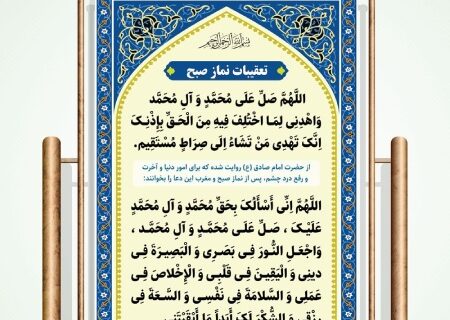 بسم الله الرحمن الرحیم
تعقیبات نماز صبح
اللَّهُمَّ صَلِّ عَلَى مُحَمَّدٍ وَ آلِ مُحَمَّد
وَاهْدِنِي لِمَا اخْتُلِفَ فِيهِ مِنَ الْحَـقِّ بِإِذْنِـكَ
إِنَّكَ تَهْدِي مَنْ تَشَاءُ إِلَى صِرَاطٍ مُسْتَقِيم.
از حضرت امام صادق (ع) روایت شده که برای امور دنیا و آخرت
و رفع درد چشم، پس از نماز صبح و مغرب این دعا را بخوانند:
اللَّهُمَّ اِنِّي أَسْأَلُكَ بِحَقِّ مُحَمَّدٍ وَ آلِ مُحَمَّدٍ
عَلَيْـكَ ، صَلِّ عَلَـى مُحَمَّـدٍ وَ آلِ مُحَمَّـد ،
وَاجْعَلِ النُّـورَ فِـي بَصَـرِي وَ الْبَصِيـرَةَ فِـي
دِينِي وَ الْيَقِينَ فِي قَلْبِـي وَ الْإِخْلاصَ فِـي
عَمَلِي وَ السَّلامَةَ فِي نَفْسِـي وَ السَّـعَةَ فِي
رِزْقِي وَ الشُّكْرَ لَكَ أَبَداً مَا أَبْقَيْتَنِي